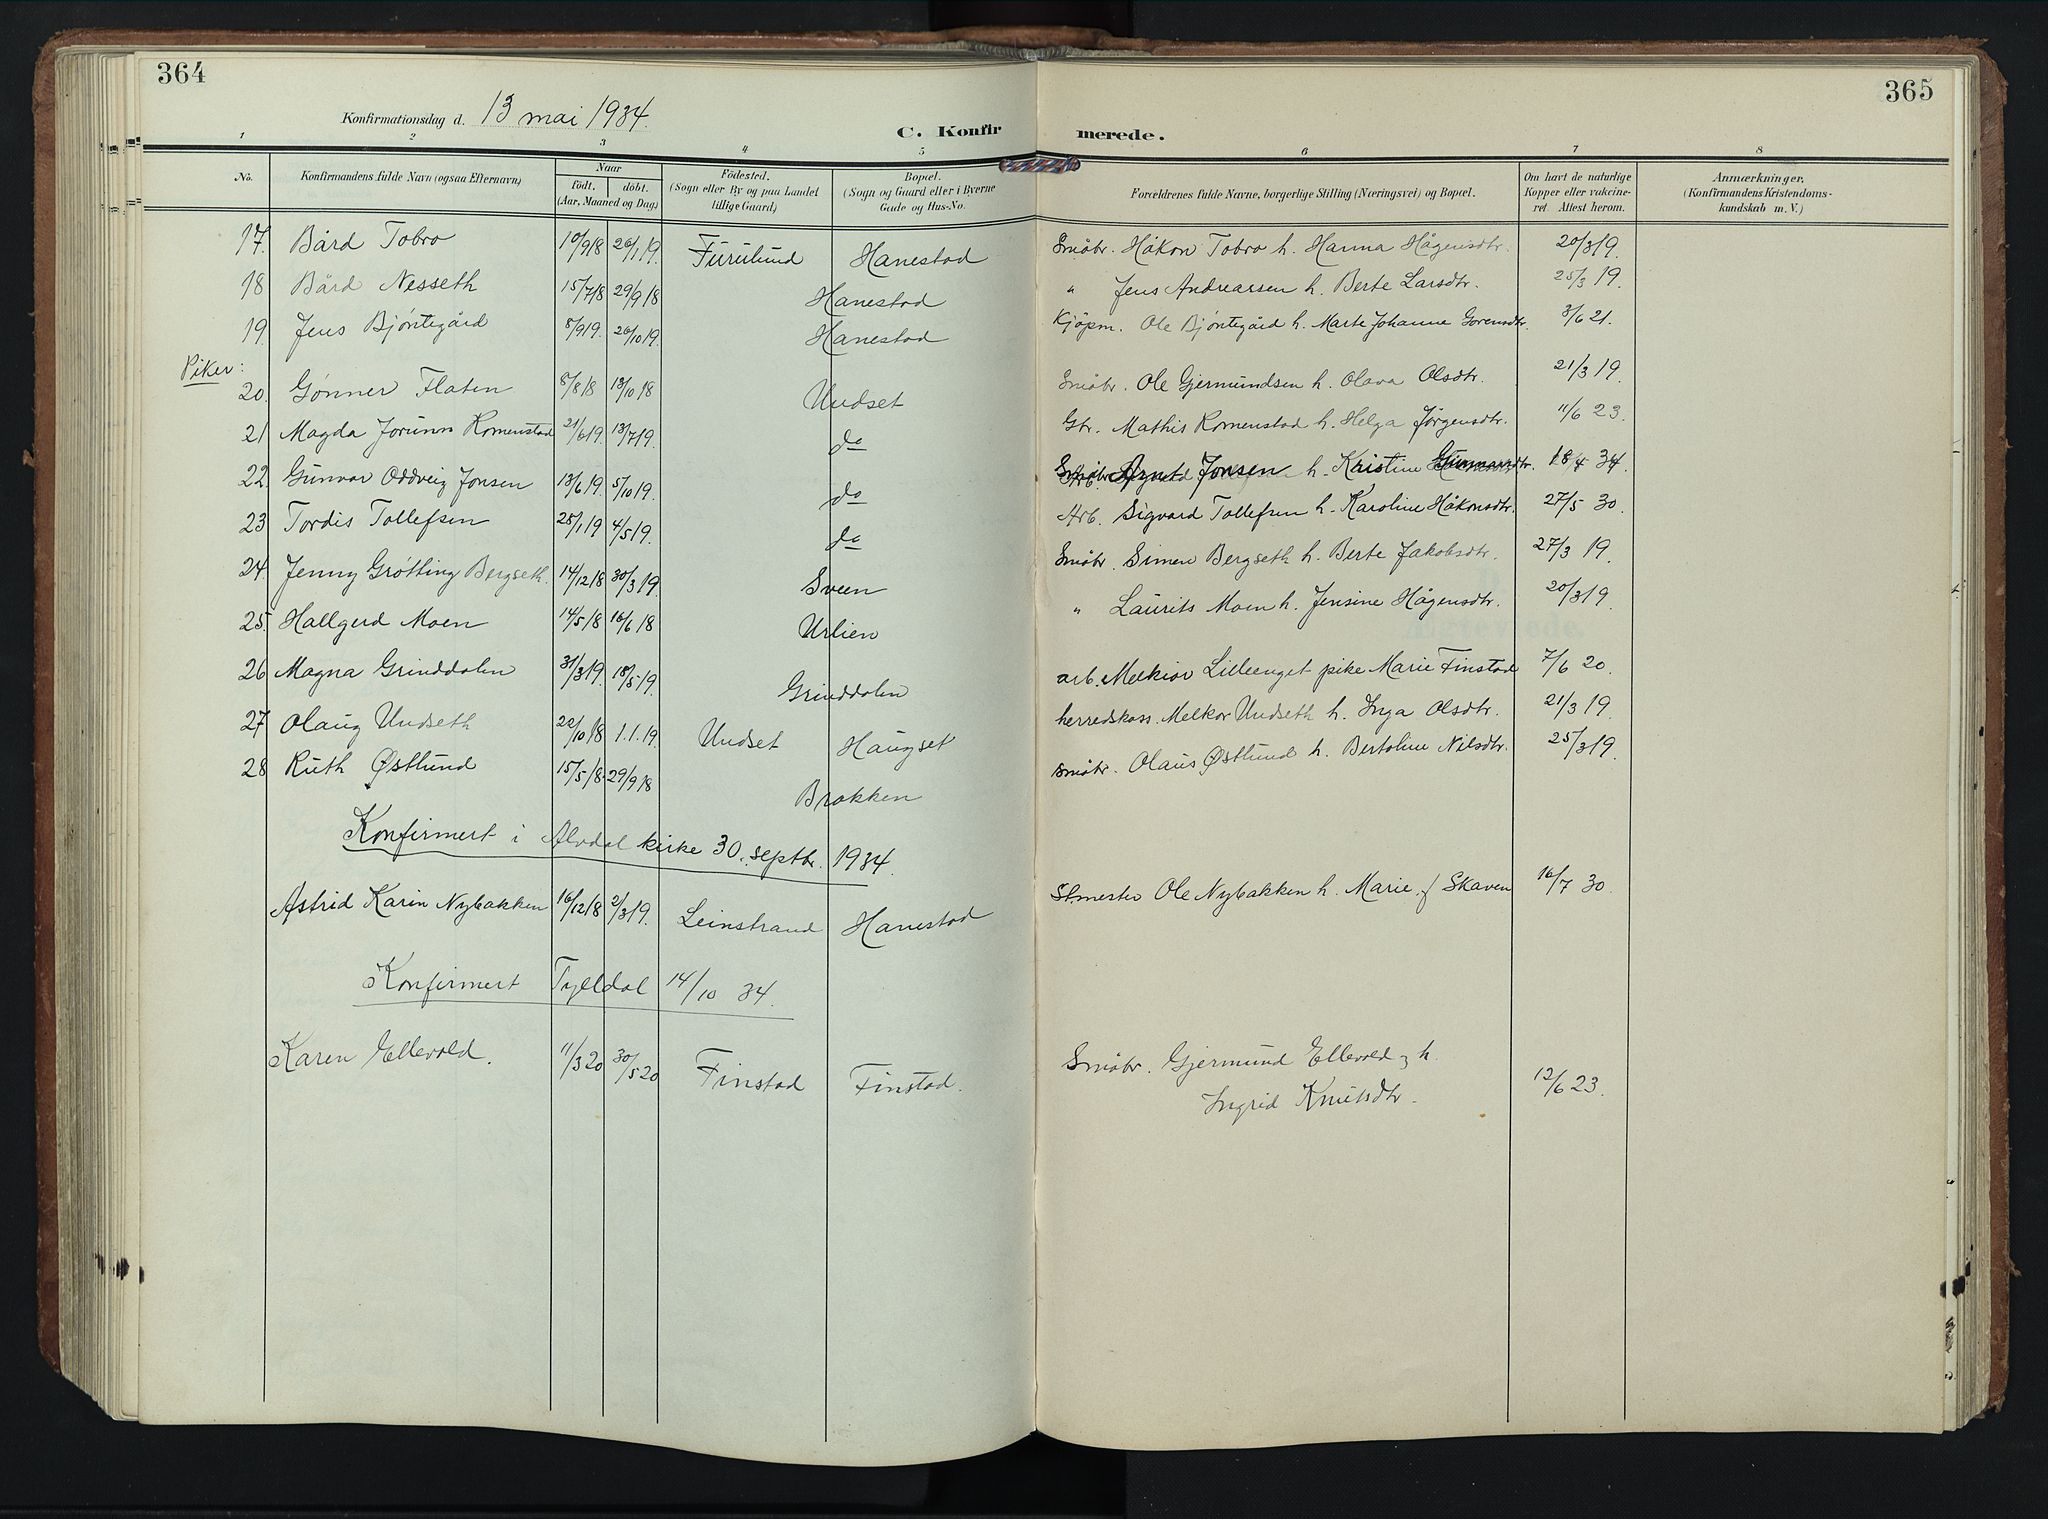 364
365
Konfirmationsdag d. 13 mai 1934.
C. Konfirmerede.
1 2 3 4 5 6 7 8
No. Konfirmandens fulde Navn (ogsaa Efternavn) Naar født. døbt. (Aar, Maaned og Dag) Fødested. (Sogn eller By og paa Landet tillige Gaard) Bopæl. (Sogn og Gaard eller i Byerne Gade og Hus-No. Forældrenes fulde Navne, borgerlige Stilling (Næringsvei) og Bopæl. Om havt de naturlige Kopper eller vakcineret. Attest herom. Anmærkninger, (Konfirmandens Kristendomskundskab m. V.)
17. Bård Tobro 10/9 18 26/1 19. Furulund Hanestad Småbr. Håkon Tobro h. Hanna Hågensdtr. 20/3 19.
18 Bård Nesseth 15/7 18 29/9 18 Hanestad " Jens Andreassen h. Berte Larsdtr. 25/3 19.
19. Jens Bjøntegård 8/9 19. 26/10 19. Hanestad Kjøpm. Ole Bjøntegård h. Marte Johanne Gorensdtr. 3/6 21.
Piker:
20. Gønner Flaten 8/8 18 13/10 18 Undset Småbr. Ole Gjermundsen h. Olava Olsdtr. 21/3 19.
21 Magda Jorunn Romenstad 21/6 19. 13/7 19. do Gbr. Mathis Romenstad h. Helga Jørgensdtr. 11/6 23.
22. Gunvor Oddveig Jonsen 13/6 19. 5/10 19. do Småbr. Jonsen h. Kristine 18/4 34.
23 Tordis Tollefsen 28/1 19 4/5 19. do Arb. Sigvard Tollefsen h. Karoline Håkonsdtr. 27/5 30.
24. Jenny Grøtting Bergseth. 14/12 18 30/3 19. Sveen Småbr. Simen Bergseth h. Berte Jakobsdtr. 27/3 19.
25. Hallgerd Moen 14/5 18 16/6 18 Urlien " Laurits Moen h. Jensine Hågensdtr. 20/3 19.
26 Magna Grinddalen 31/3 19. 18/5 19. Grinddalen arb. Melkior Lilleenget pike Marie Finstad 7/6 20.
27 Olaug Undseth 22/10 18 1.1.19. Undset Haugset herredskass. Melkor Undseth h. Inga Olsdtr. 21/3 19.
28 Ruth Østlund 15/5 18 29/9 18 Brakken småbr. Olaus Østlund h. Bertoline Nilsdtr. 25/3 19.
Konfirmert i Alvdal kirke 30. septbr. 1934.
Astrid Karin Nybakken 16/12 18 2/3 19. Leinstrand Hanestad St.mester Ole Nybakken h. Marie f. Skaven 16/7 30.
Konfirmert Tylldal 14/10 34.
Karen Ellevold. 11/3 20 30/5 20 Finstad Finstad. Småbr. Gjermund Ellevold og h.
Ingrid Knutsdtr. 12/6 23.